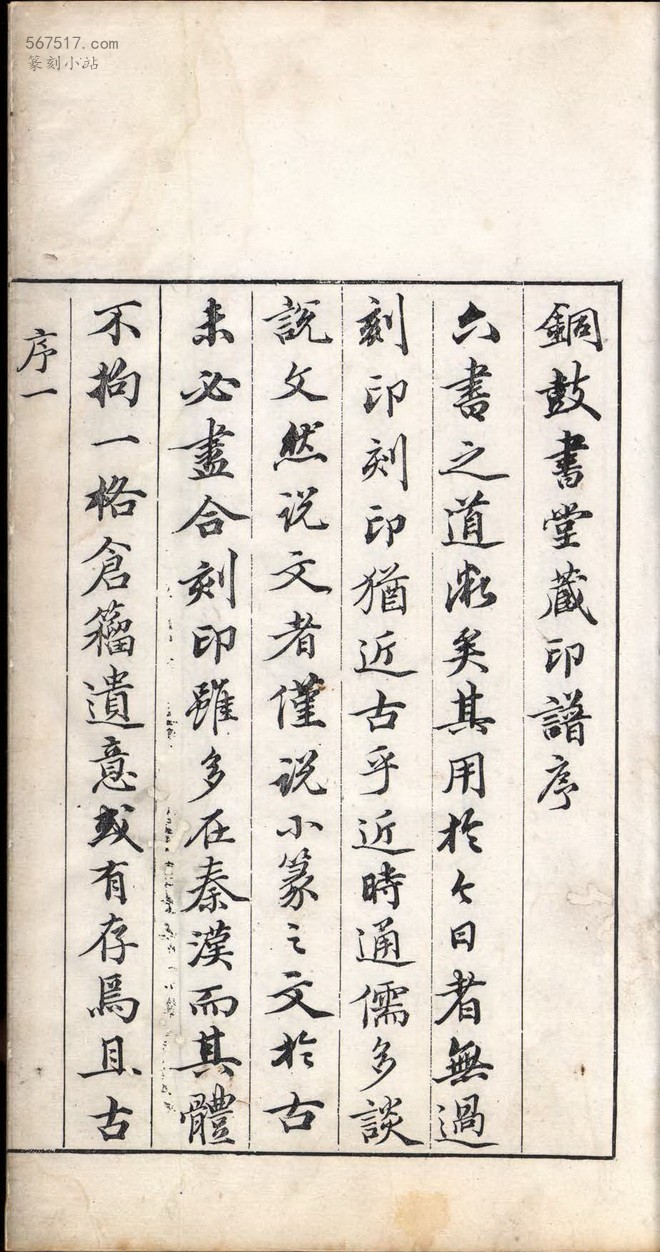 567517.com
篆刻小站
銅鼓書堂藏印譜序
六書之道漸矣其用於今日者無過
刻印刻印猶近古乎近時通儒多談
說文然说文者僅说小篆之文於古
未必盡合刻印雖多在秦漢而其體
不拘一格倉籀遺意或有存焉且古
序一